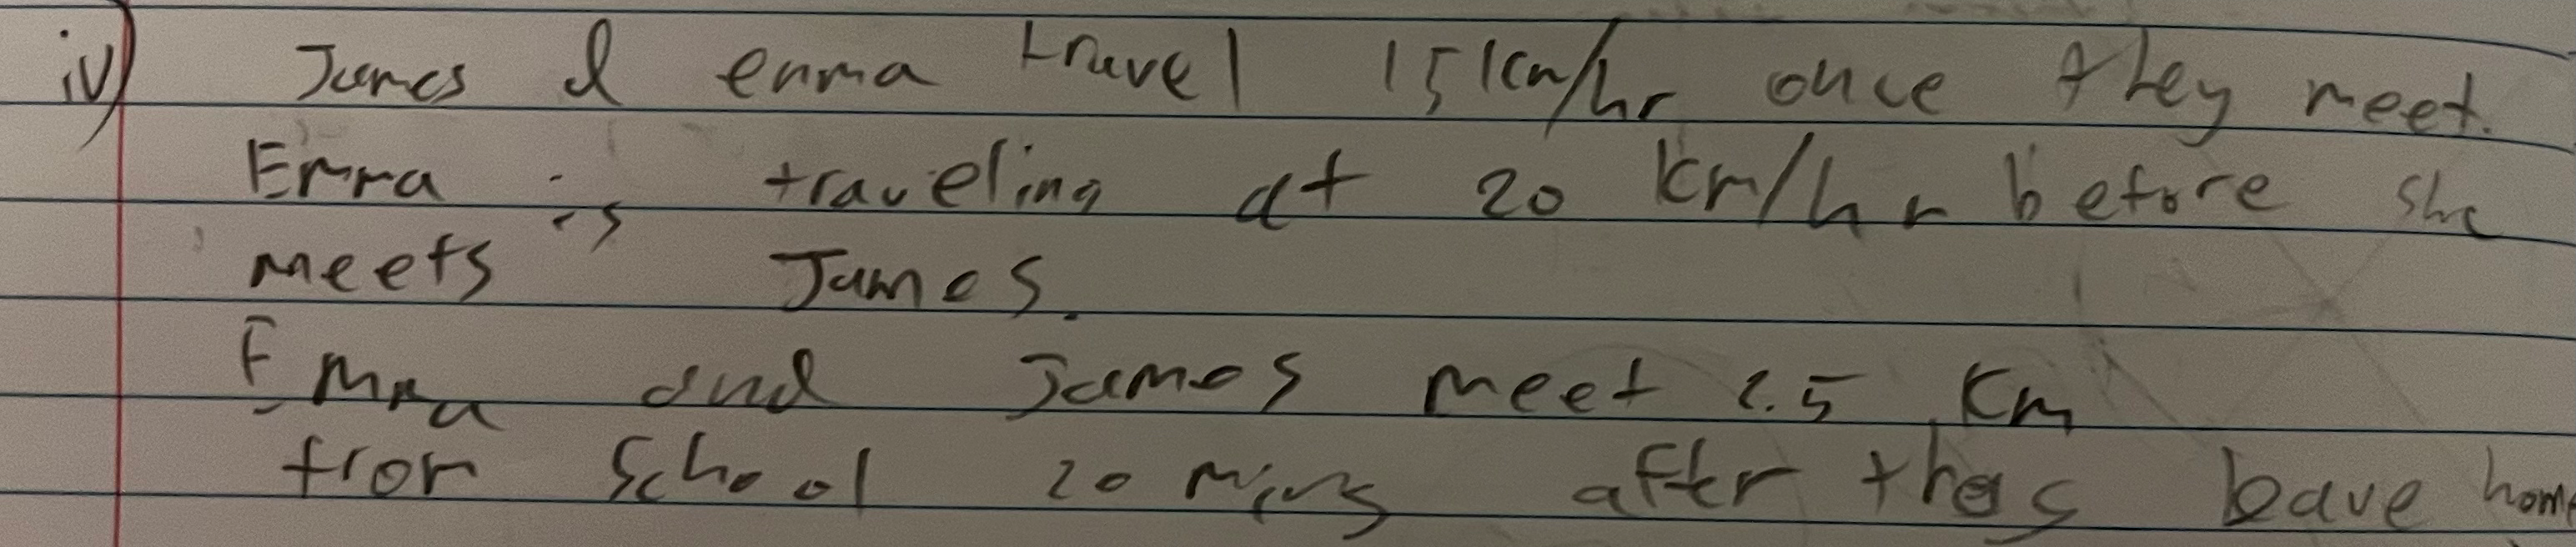 iv) James & emma travel 15km/hr once they meet.
Emma is traveling at 20 km/hr before she
meets James.
Emma and James meet 2.5 Km
from School 20 mins after they leave home